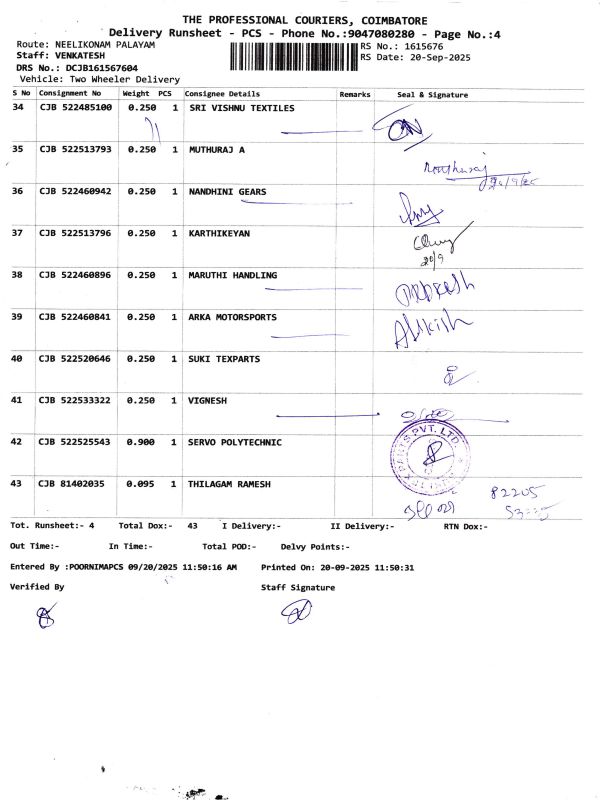 THE PROFESSIONAL COURIERS, COIMBATORE
Delivery Runsheet - PCS - Phone No.:9047080280 - Page No.:4
Route: NEELIKONAM PALAYAM
RS No.: 1615676
Staff: VENKATESH
RS Date: 20-Sep-2025
DRS No.: DCJB161567604
Vehicle: Two Wheeler Delivery
S No Consignment No Weight PCS Consignee Details Remarks Seal & Signature
34 CJB 522485100 0.250 1 SRI VISHNU TEXTILES
35 CJB 522513793 0.250 1 MUTHURAJ A
Muthuraj
20/9/25
36 CJB 522460942 0.250 1 NANDHINI GEARS
37 CJB 522513796 0.250 1 KARTHIKEYAN
20/9
38 CJB 522460896 0.250 1 MARUTHI HANDLING
39 CJB 522460841 0.250 1 ARKA MOTORSPORTS
40 CJB 522520646 0.250 1 SUKI TEXPARTS
41 CJB 522533322 0.250 1 VIGNESH
42 CJB 522525543 0.900 1 SERVO POLYTECHNIC
PARTS PVT. LTD.
43 CJB 81402035 0.095 1 THILAGAM RAMESH
82205
Tot. Runsheet:- 4 Total Dox:- 43 I Delivery:- II Delivery:- RTN Dox:-
Out Time:- In Time:- Total POD:- Delvy Points:-
Entered By :POORNIMAPCS 09/20/2025 11:50:16 AM Printed On: 20-09-2025 11:50:31
Verified By Staff Signature